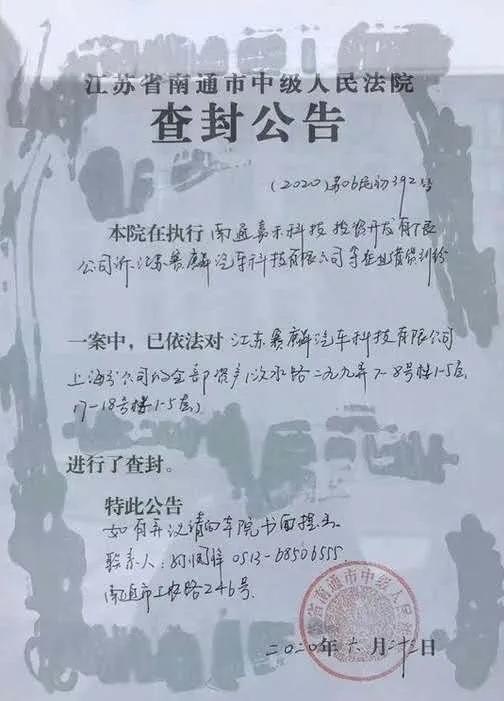 江苏省南通市中级人民法院
查封公告
(2020)苏06民初392号
本院在执行 南通嘉禾科技投资开发有限
公司诉江苏赛麟汽车科技有限公司等企业借贷纠纷
一案中，已依法对 江苏赛麟汽车科技有限公司
上海分公司的全部资产(汶水路二九九弄7-8号楼1-5层
17-18号楼1-5层)
进行了查封。
特此公告
如有异议请向本院书面提出
联系人： 0513-68506555
南通市工农路246号
江苏省南通市中级人民法院
二〇二〇年六月二十三日